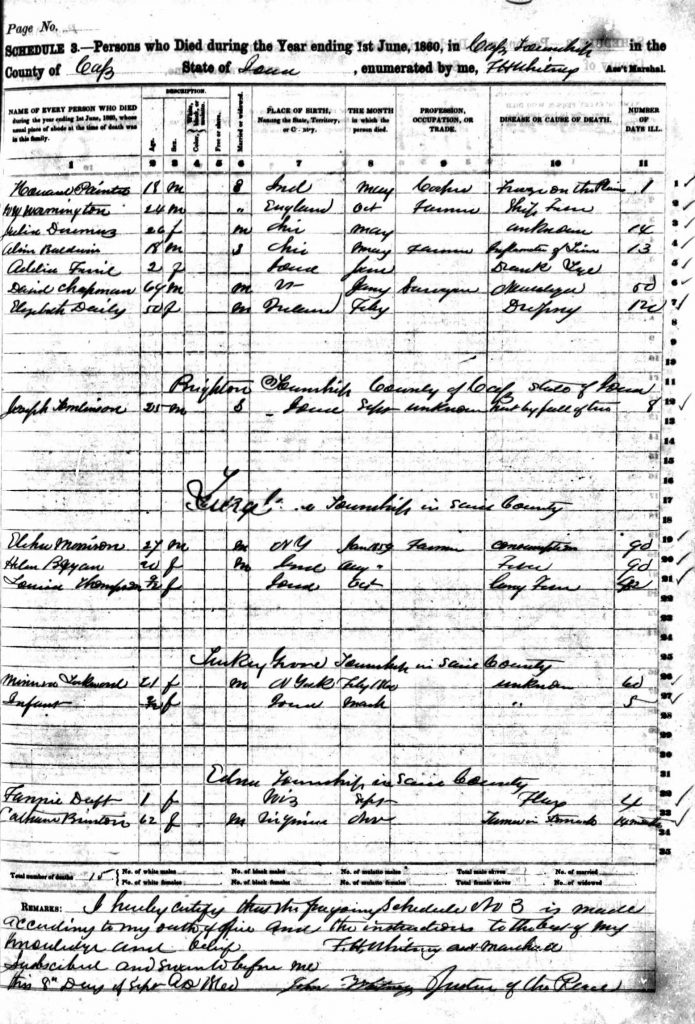 Page No.
SCHEDULE 3.—Persons who Died during the Year ending 1st June, 1860, in Cass Township in the
County of Cass State of Iowa, enumerated by me, F H Whitney Ass't Marshal.
DESCRIPTION.
NAME OF EVERY PERSON WHO DIED during the year ending 1st June, 1860, whose usual place of abode at the time of death was in this family. Age. Sex. Color, Free or slave. Married or widowed. PLACE OF BIRTH, Naming the State, Territory, or Country. THE MONTH in which the person died. PROFESSION, OCCUPATION, OR TRADE. DISEASE OR CAUSE OF DEATH. NUMBER OF DAYS ILL.
1 2 3 4 5 6 7 8 9 10 11
18 m S Ind May on the 1 1
Wm Warrington 24 m " England Oct Farmer Ship 2
Julia 26 f m May unknown 14 3
Baldwin 18 m S May Farmer of 13 4
Adelia 2 f Iowa June Drank Lye 5
David Chapman 64 m m Surveyor 50 6
Elizabeth Daily 50 f m Ireland Feby Dropsy 7
8
9
10
Brighton Township County of Cass State of Iowa 11
Joseph Tomlinson 25 m S Iowa Sept unknown hurt by fall of tree 8 12
13
14
15
16
Township in said County 17
18
Elihu Morrison 27 m m N Y Jan 1859 Farmer consumption 90 19
Helen Bryan f m Ind Aug Fever 90 20
Louisa Thompson f Iowa Oct Lung Fever 21
22
23
24
25
Turkey Grove Township in said County 26
Minerva Lockwood 21 f m N York Feby unknown 60 27
Infant f Iowa March " 5
28
29
30
31
Edna Township in said County
Fannie 1 f Wis Sept Flux 4
Brinton 62 f m Virginia Nov Stomach 14 months
34
35
Total number of deaths 15 No. of white males No. of black males No. of mulatto males Total male slaves No. of married
No. of white females No. of black females No. of mulatto females Total female slaves No. of widowed
REMARKS: I hereby certify that the foregoing Schedule No 3 is made
according to my oath of office and the instructions to the best of my
knowledge and belief F. H. Whitney asst marshall
Subscribed and sworn to before me
this 8th Day of Sept AD 1860 John Whitney Justice of the Peace